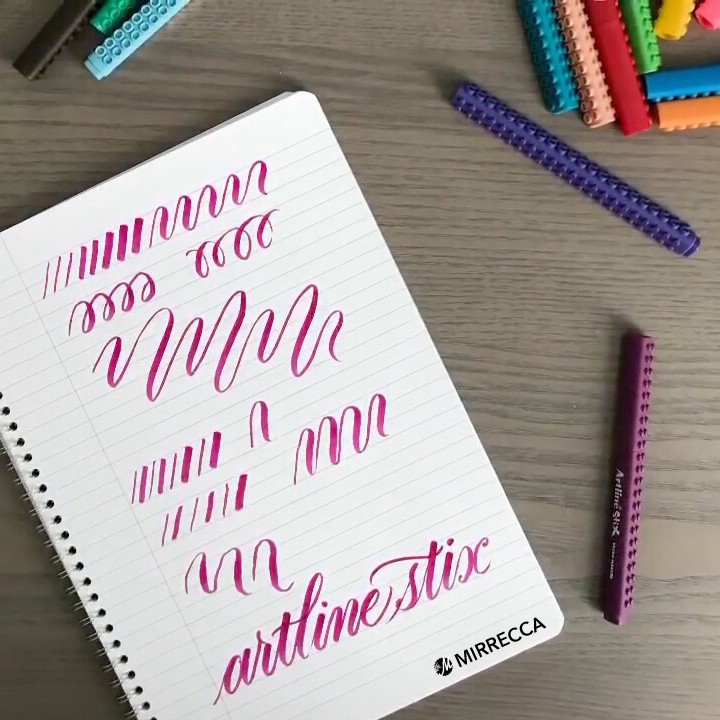 artline stix
MIRRECCA
Artline Stix